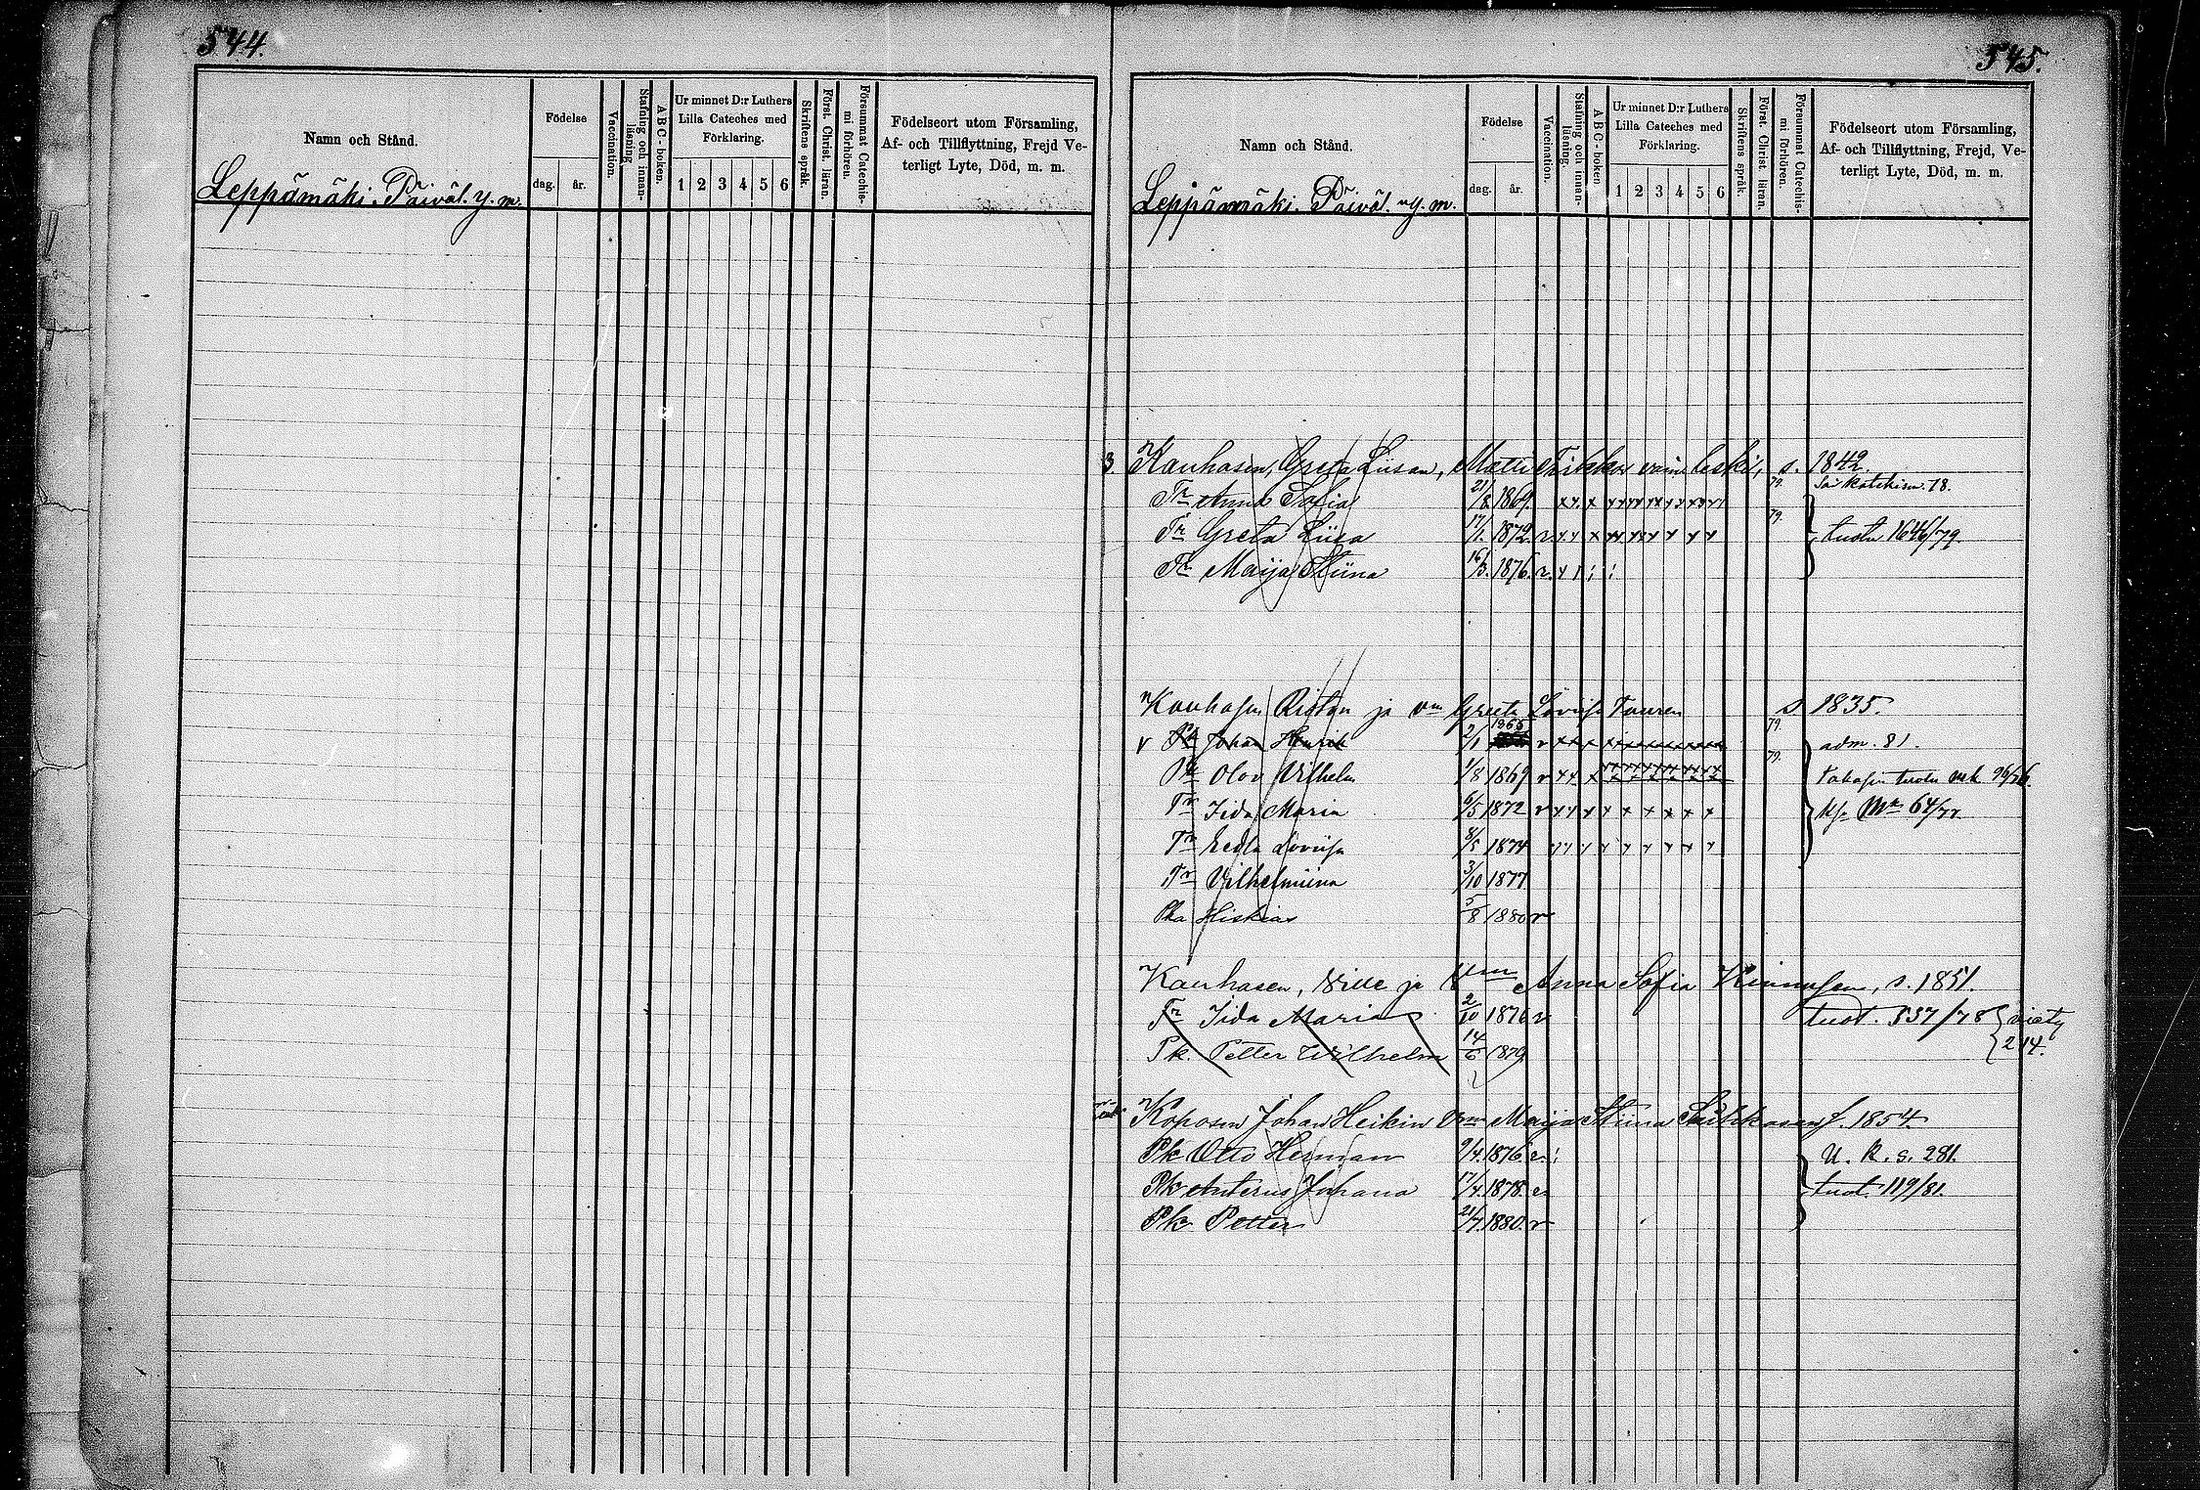 544.
Namn och Stånd.
Födelse
dag.
år.
Vaccination.
Stafning och innanläsning
ABC-boken.
Ur minnet D:r Luthers
Lilla Cateches med
Förklaring.
1 2 3 4 5 6
Skriftens språk.
Först. Christ. läran.
Försummat Catechismi förhören.
Födelseort utom Församling,
Af- och Tillflyttning, Frejd Ve-
terligt Lyte, Död, m. m.
Leppämäki. Päiväl. y. m.
545.
Namn och Stånd.
Födelse
dag.
år.
Vaccination.
Stafning och innanläsning.
ABC-boken
Ur minnet D:r Luthers
Lilla Cateches med
Förklaring.
1 2 3 4 5 6
Skriftens språk.
Först. Christ. läran.
Försummat Catechismi förhören.
Födelseort utom Församling,
Af- och Tillflyttning, Frejd, Ve-
terligt Lyte, Död, m. m.
Leppämäki. Päiväl. y. m.
3. Kauhasen, Greta Liisan, Matti vain. leski, s. 1842.
Tr Anna Sofia 21/8 1869. x x x 79.
Tr Greta Liisa 17/1 1872. v x x x 79. tuotu 1646/79.
Tr Maija Stiina 16/3 1876. v.
Kauhasen Ristan ja vm Greeta Loviisa s 1835.
v Pk Johan Henrik 2/1 1866 v x x x 79. adm. 81.
Pk Olov Vilhelm 1/8 1869 v x x x 79.
Tr Iida Maria 6/5 1872 v x x x 64/77
Tr Eedla Loviisa 8/5 1874
Tr Vilhelmiina 3/10 1877
Pka Hiskias 5/8 1880 v
Kauhasen, Ville ja Vm Anna Sofia s. 1851.
Tr Iida Maria 2/10 1876 v tuot. 537/78 viety
Pk. Petter Wilhelm 14/6 1879 214.
Koposen Johan Heikin Vm Maija Stiina s. 1854.
Pk Otto Herman 9/4 1876 v. U. K. s. 281.
Pk Anterus Johana 17/4 1878. v tuot. 119/81.
Pk Petter 21/7 1880. v